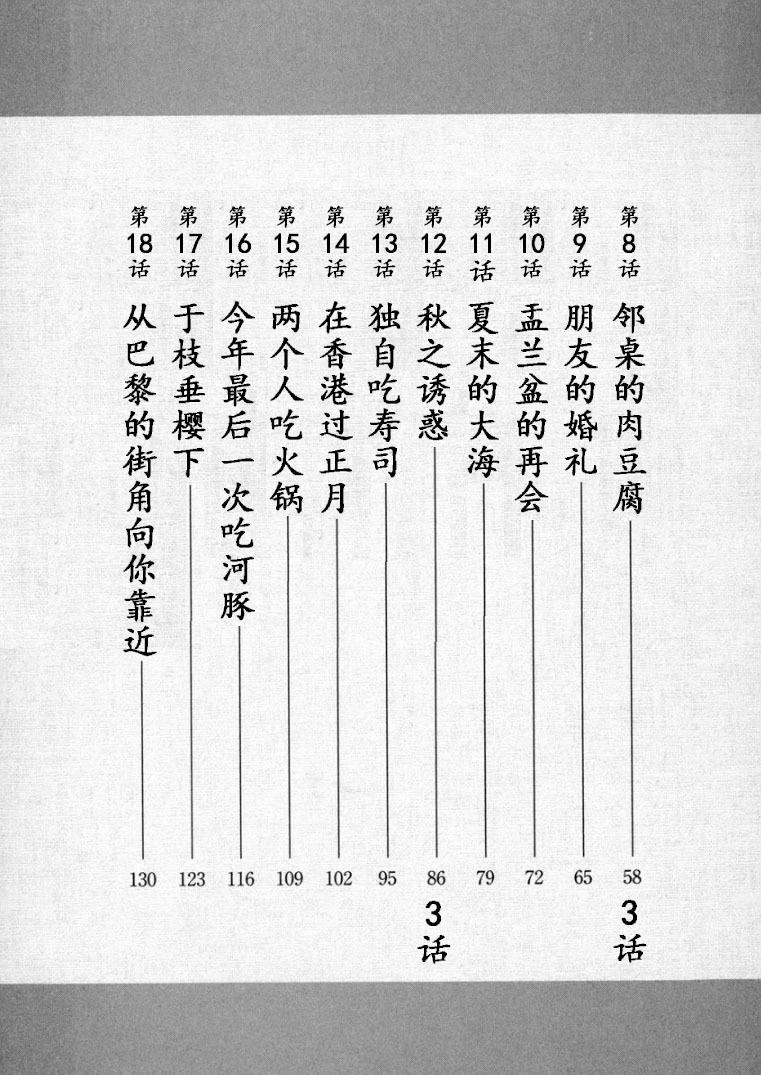 第8话 邻桌的肉豆腐 58
3话
第9话 朋友的婚礼 65
第10话 盂兰盆的再会 72
第11话 夏末的大海 79
第12话 秋之诱惑 86
3话
第13话 独自吃寿司 95
第14话 在香港过正月 102
第15话 两个人吃火锅 109
第16话 今年最后一次吃河豚 116
第17话 于枝垂樱下 123
第18话 从巴黎的街角向你靠近 130